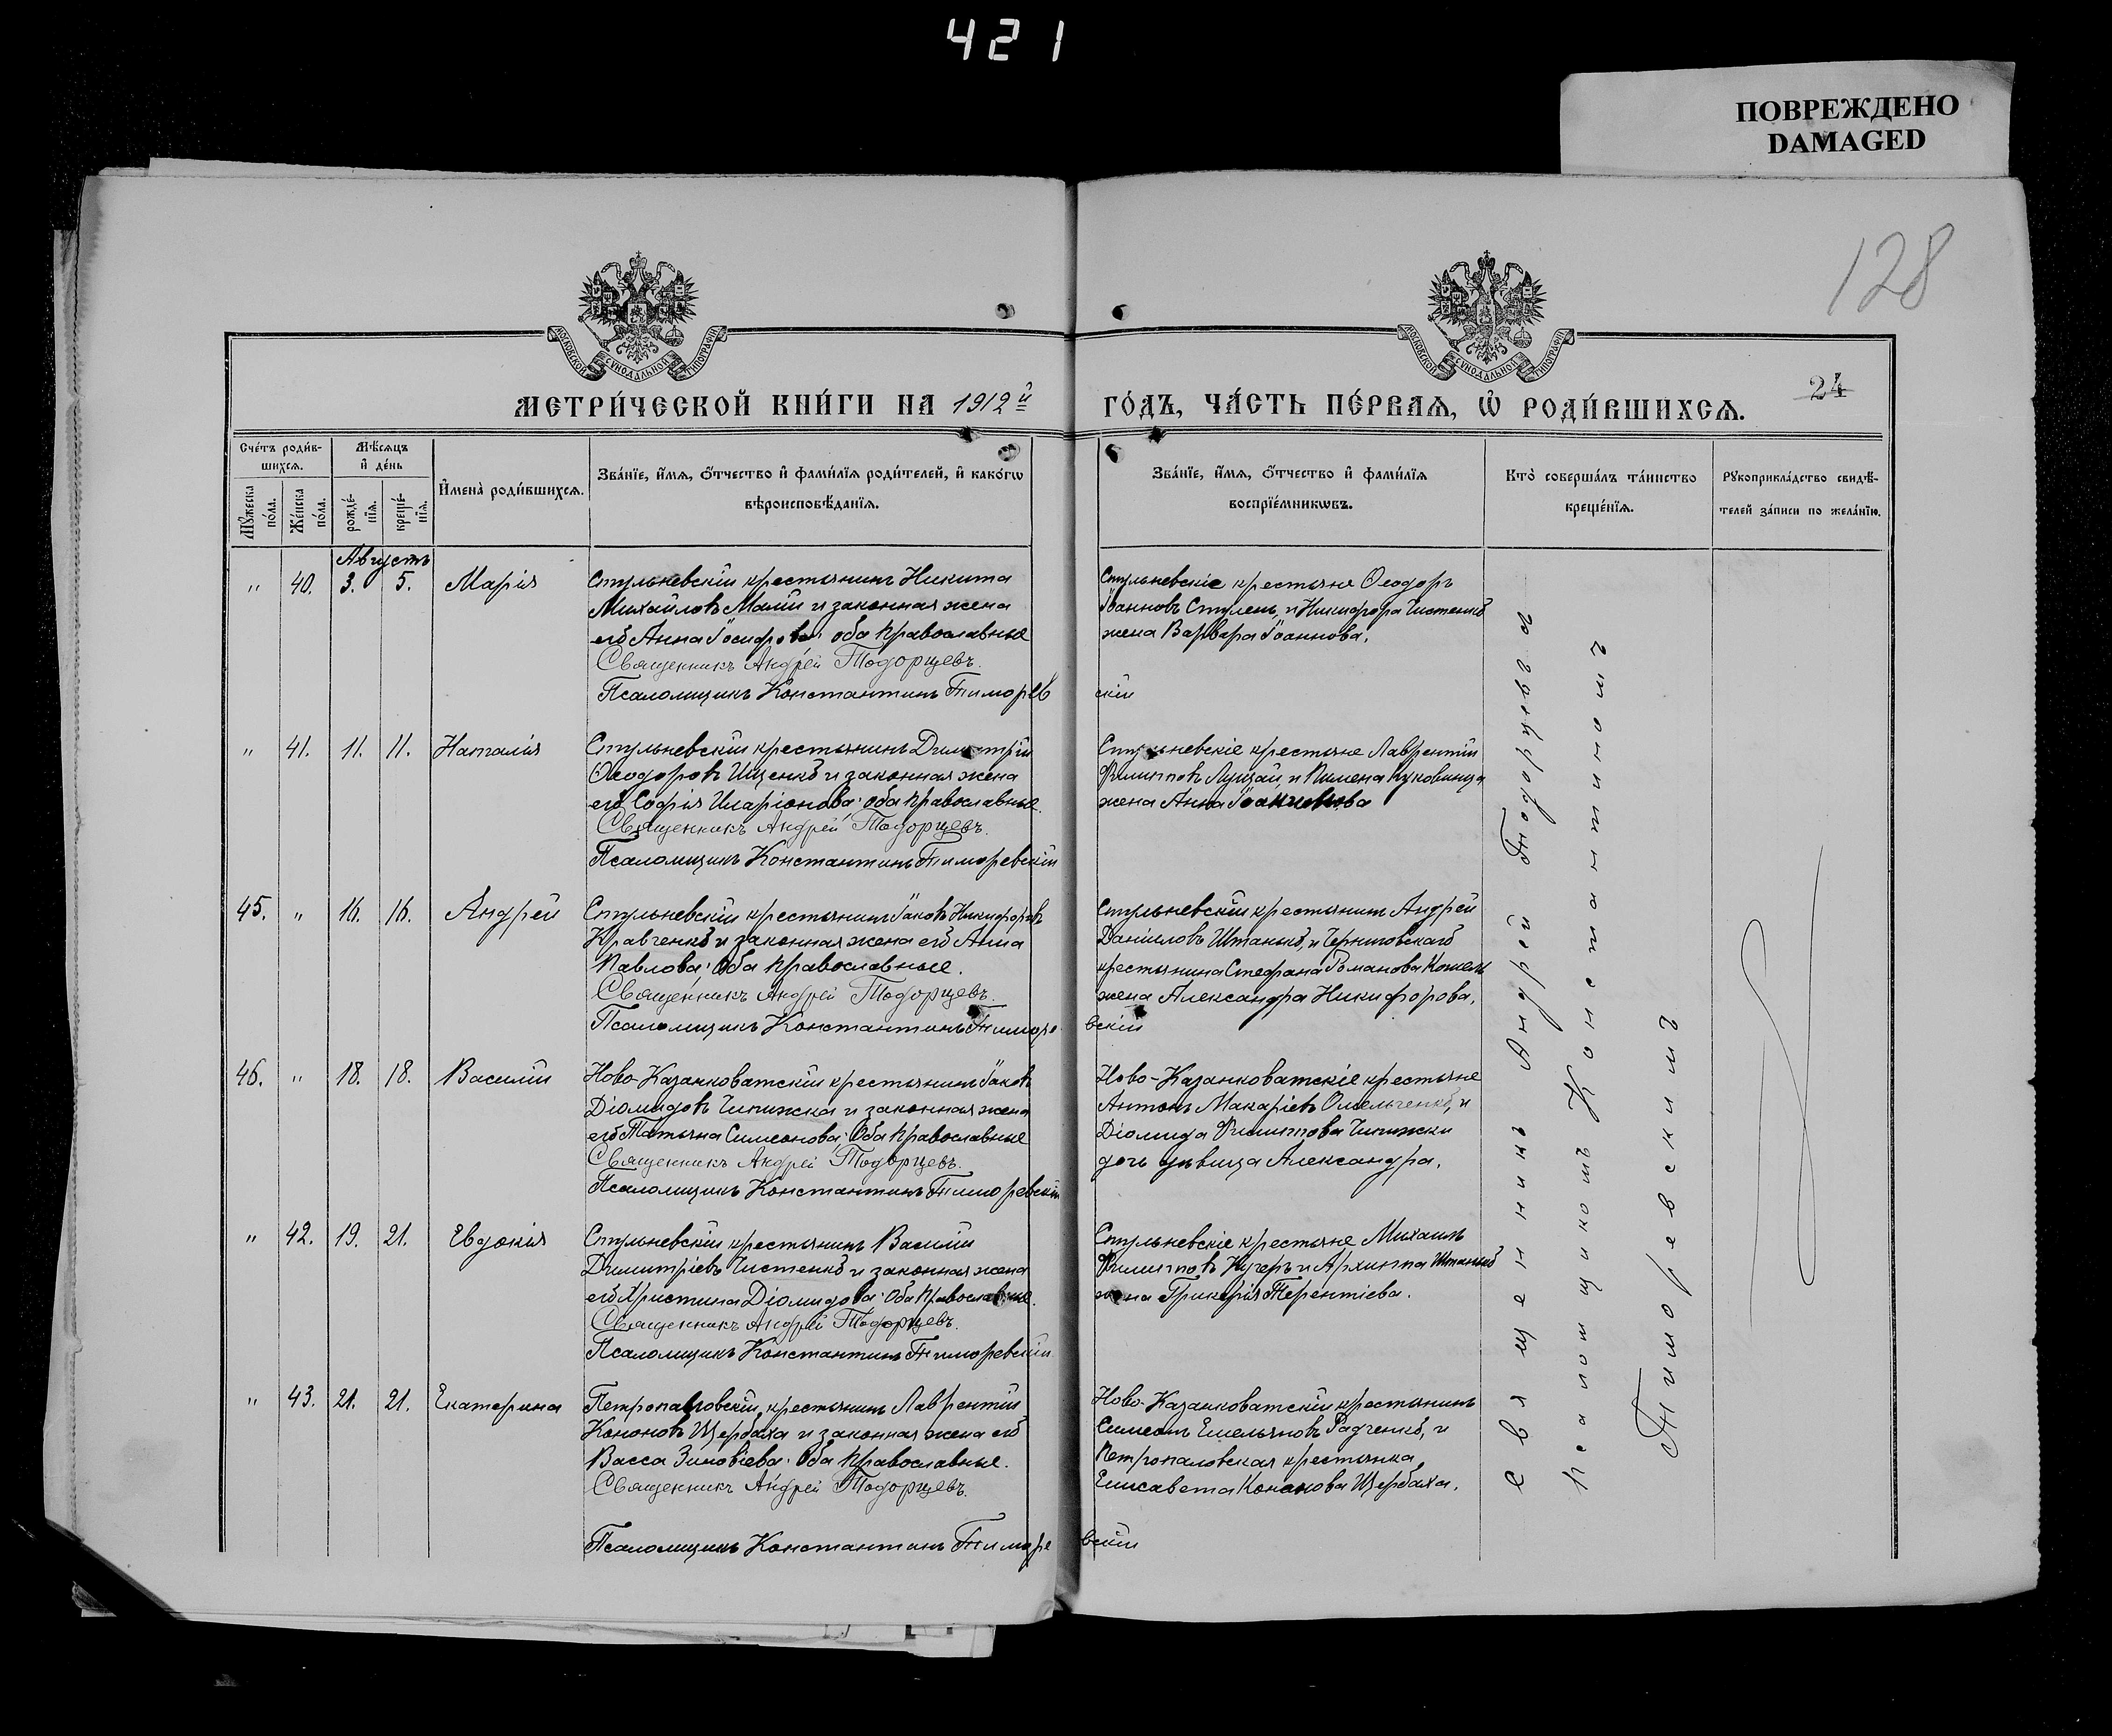 421
ПОВРЕЖДЕНО
DAMAGED
128
МОСКОВСКОЙ СѴНОДАЛЬНОЙ ТИПОГРАФІИ
МОСКОВСКОЙ СѴНОДАЛЬНОЙ ТИПОГРАФІИ
МЕТРИ́ЧЕСКОЙ КНИ́ГИ НА 1912й
ГО́ДЪ, ЧА́СТЬ ПЕ́РВАЯ, Ѡ҆ РОДИ́ВШИХСЯ.
24
Сче́тъ роди́в-
шихся.
Мѣ́сяцъ
и҆ де́нь
Мꙋ́жеска по́ла.
Же́нска по́ла.
рожде́-
нїя.
креще́-
нїя.
И҆мена̀ роди́вшихся.
Зва́нїе, и҆́мя, ѻ҆́тчество и҆ фами́лїя роди́телей, и҆ како́гѡ
вѣроисповѣ́данїя.
Зва́нїе, и҆́мя, ѻ҆́тчество и҆ фами́лїя
воспрїе́мникѡвъ.
Кто̀ соверша́лъ та́инство
креще́нїя.
Рꙋкоприкла́дство свидѣ́-
телей за́писи по жела́нїю.
Августъ
" 40. 3. 5. Марія
Стульневскій крестьянинъ Никита
Михайловъ Малій и законная жена
его Анна Іосифова; оба православные
Священникъ Андрей Тодорцевъ.
Псаломщикъ Константинъ Тиморев
скій
Стульневскіе крестьяне Ѳеодоръ
Іоанновъ Стулень, и Никифора Чистенко
жена Варвара Іоаннова.
" 41. 11. 11. Наталія
Стульневскій крестьянинъ Димитрій
Ѳеодоровъ Ищенко и законная жена
его Софія Иларіонова; оба православные
Священникъ Андрей Тодорцевъ.
Псаломщикъ Константинъ Тиморевскій
Стульневскіе крестьяне Лаврентій
Филипповъ Луцай и Пимена Куковинца
жена Анна
45. " 16. 16. Андрей
Стульневскій крестьянинъ Іаковъ Никифоровъ
Кравченко и законная жена его Анна
Павлова; Оба православные.
Священникъ Андрей Тодорцевъ.
Псаломщикъ Константинъ Тиморе
вскій
Стульневскій крестьянинъ Андрей
Даниловъ Штанько, и Черниговскаго
крестьянина Стефана Романова Кошель
жена Александра Никифорова.
46. " 18. 18. Василій
Ново-Казанковатскій крестьянинъ Іаковъ
Діомидовъ Чепижка и законная жена
его Татьяна Симеонова; Оба православные
Священникъ Андрей Тодорцевъ.
Псаломщикъ Константинъ Тиморевскій
Ново-Казанковатскіе крестьяне
Антонъ Макаріевъ Омельченко, и
Діомида Филиппова Чепижки
дочь дѣвица Александра.
" 42. 19. 21. Евдокія
Стульневскій крестьянинъ Василій
Димитріевъ Чистенко и законная жена
его Христина Діомидова; Оба православные.
Священникъ Андрей Тодорцевъ.
Псаломщикъ Константинъ Тиморевскій
Стульневскіе крестьяне Михаилъ
Филипповъ Кучеръ и Архиппа Штанько
жена Гликерія Терентіева.
" 43. 21. 21. Екатерина
Петропавловскій, крестьянинъ Лаврентій
Кононовъ Щербаха и законная жена его
Васса Зиновіева; Оба православные.
Священникъ Андрей Тодорцевъ.
Псаломщикъ Константинъ Тиморе
вскій
Ново-Казанковатскій крестьянинъ
Симеонъ Емельяновъ Радченко, и
Петропаловская крестьянка
Елисавета Кононова Щербаха.
Священникъ Андрей Тодорцевъ съ
псаломщикомъ Константиномъ
Тиморевскимъ